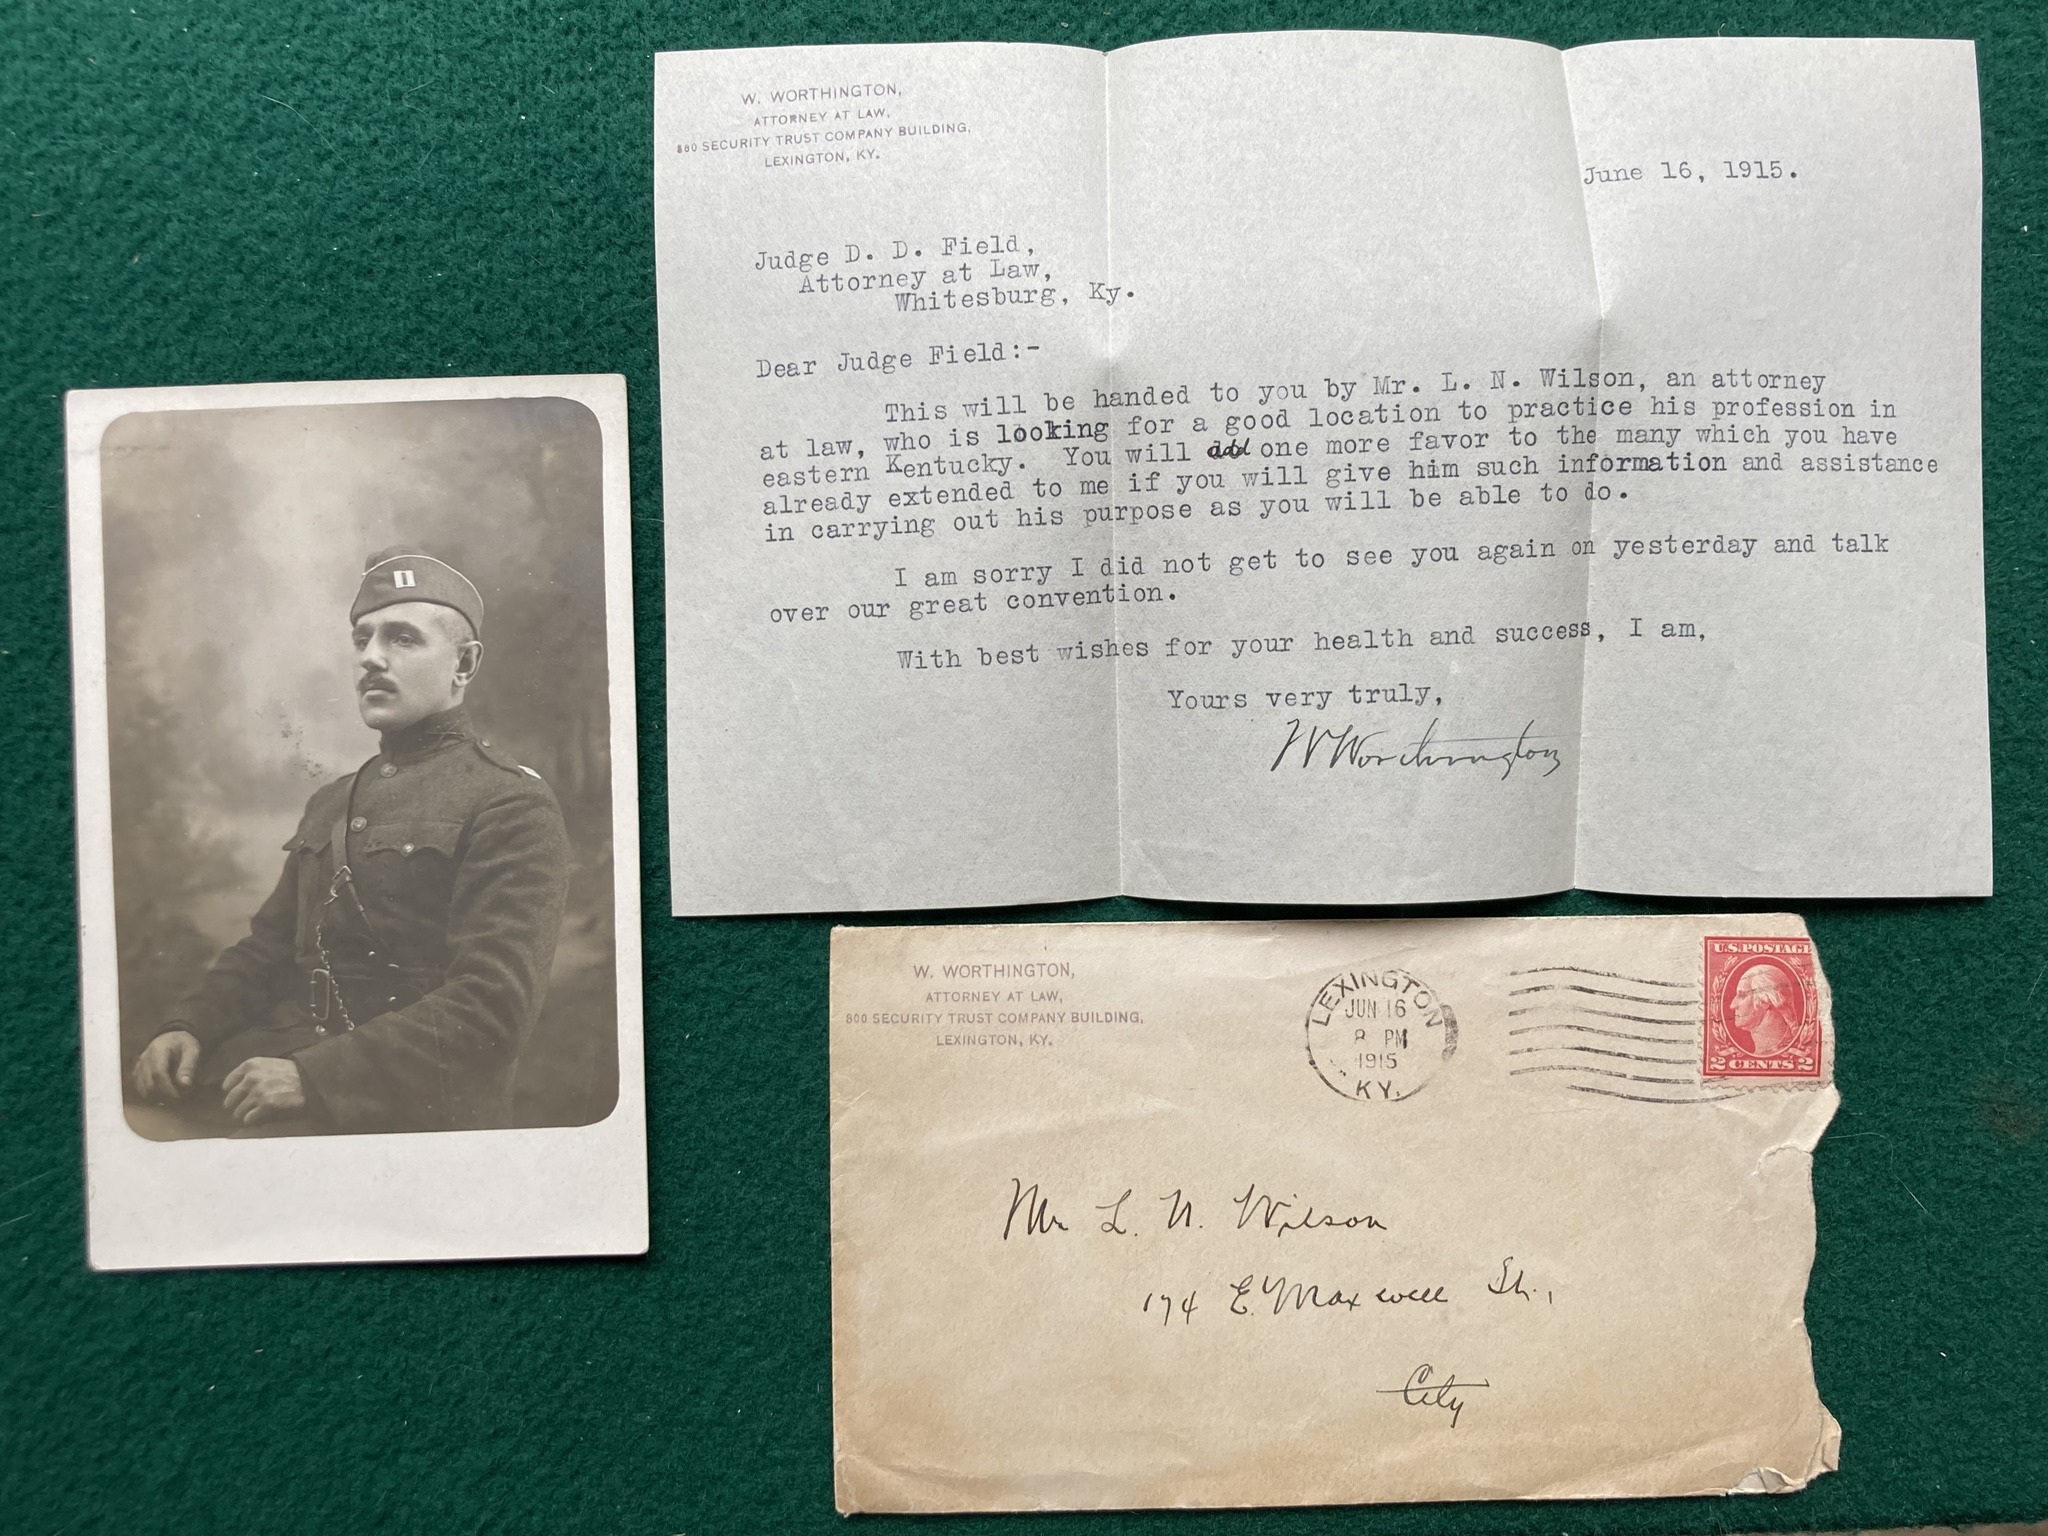 W. WORTHINGTON,
ATTORNEY AT LAW,
800 SECURITY TRUST COMPANY BUILDING,
LEXINGTON, KY.
June 16, 1915.
Judge D. D. Field,
Attorney at Law,
Whitesburg, Ky.
Dear Judge Field:-
This will be handed to you by Mr. L. N. Wilson, an attorney
at law, who is looking for a good location to practice his profession in
eastern Kentucky. You will add one more favor to the many which you have
already extended to me if you will give him such information and assistance
in carrying out his purpose as you will be able to do.
I am sorry I did not get to see you again on yesterday and talk
over our great convention.
With best wishes for your health and success, I am,
Yours very truly,
W Worthington
W. WORTHINGTON,
ATTORNEY AT LAW,
800 SECURITY TRUST COMPANY BUILDING,
LEXINGTON, KY.
LEXINGTON
JUN 16
8 PM
1915
KY.
U.S. POSTAGE
2 CENTS 2
Mr L. N. Wilson
174 E. Maxwell St.,
City